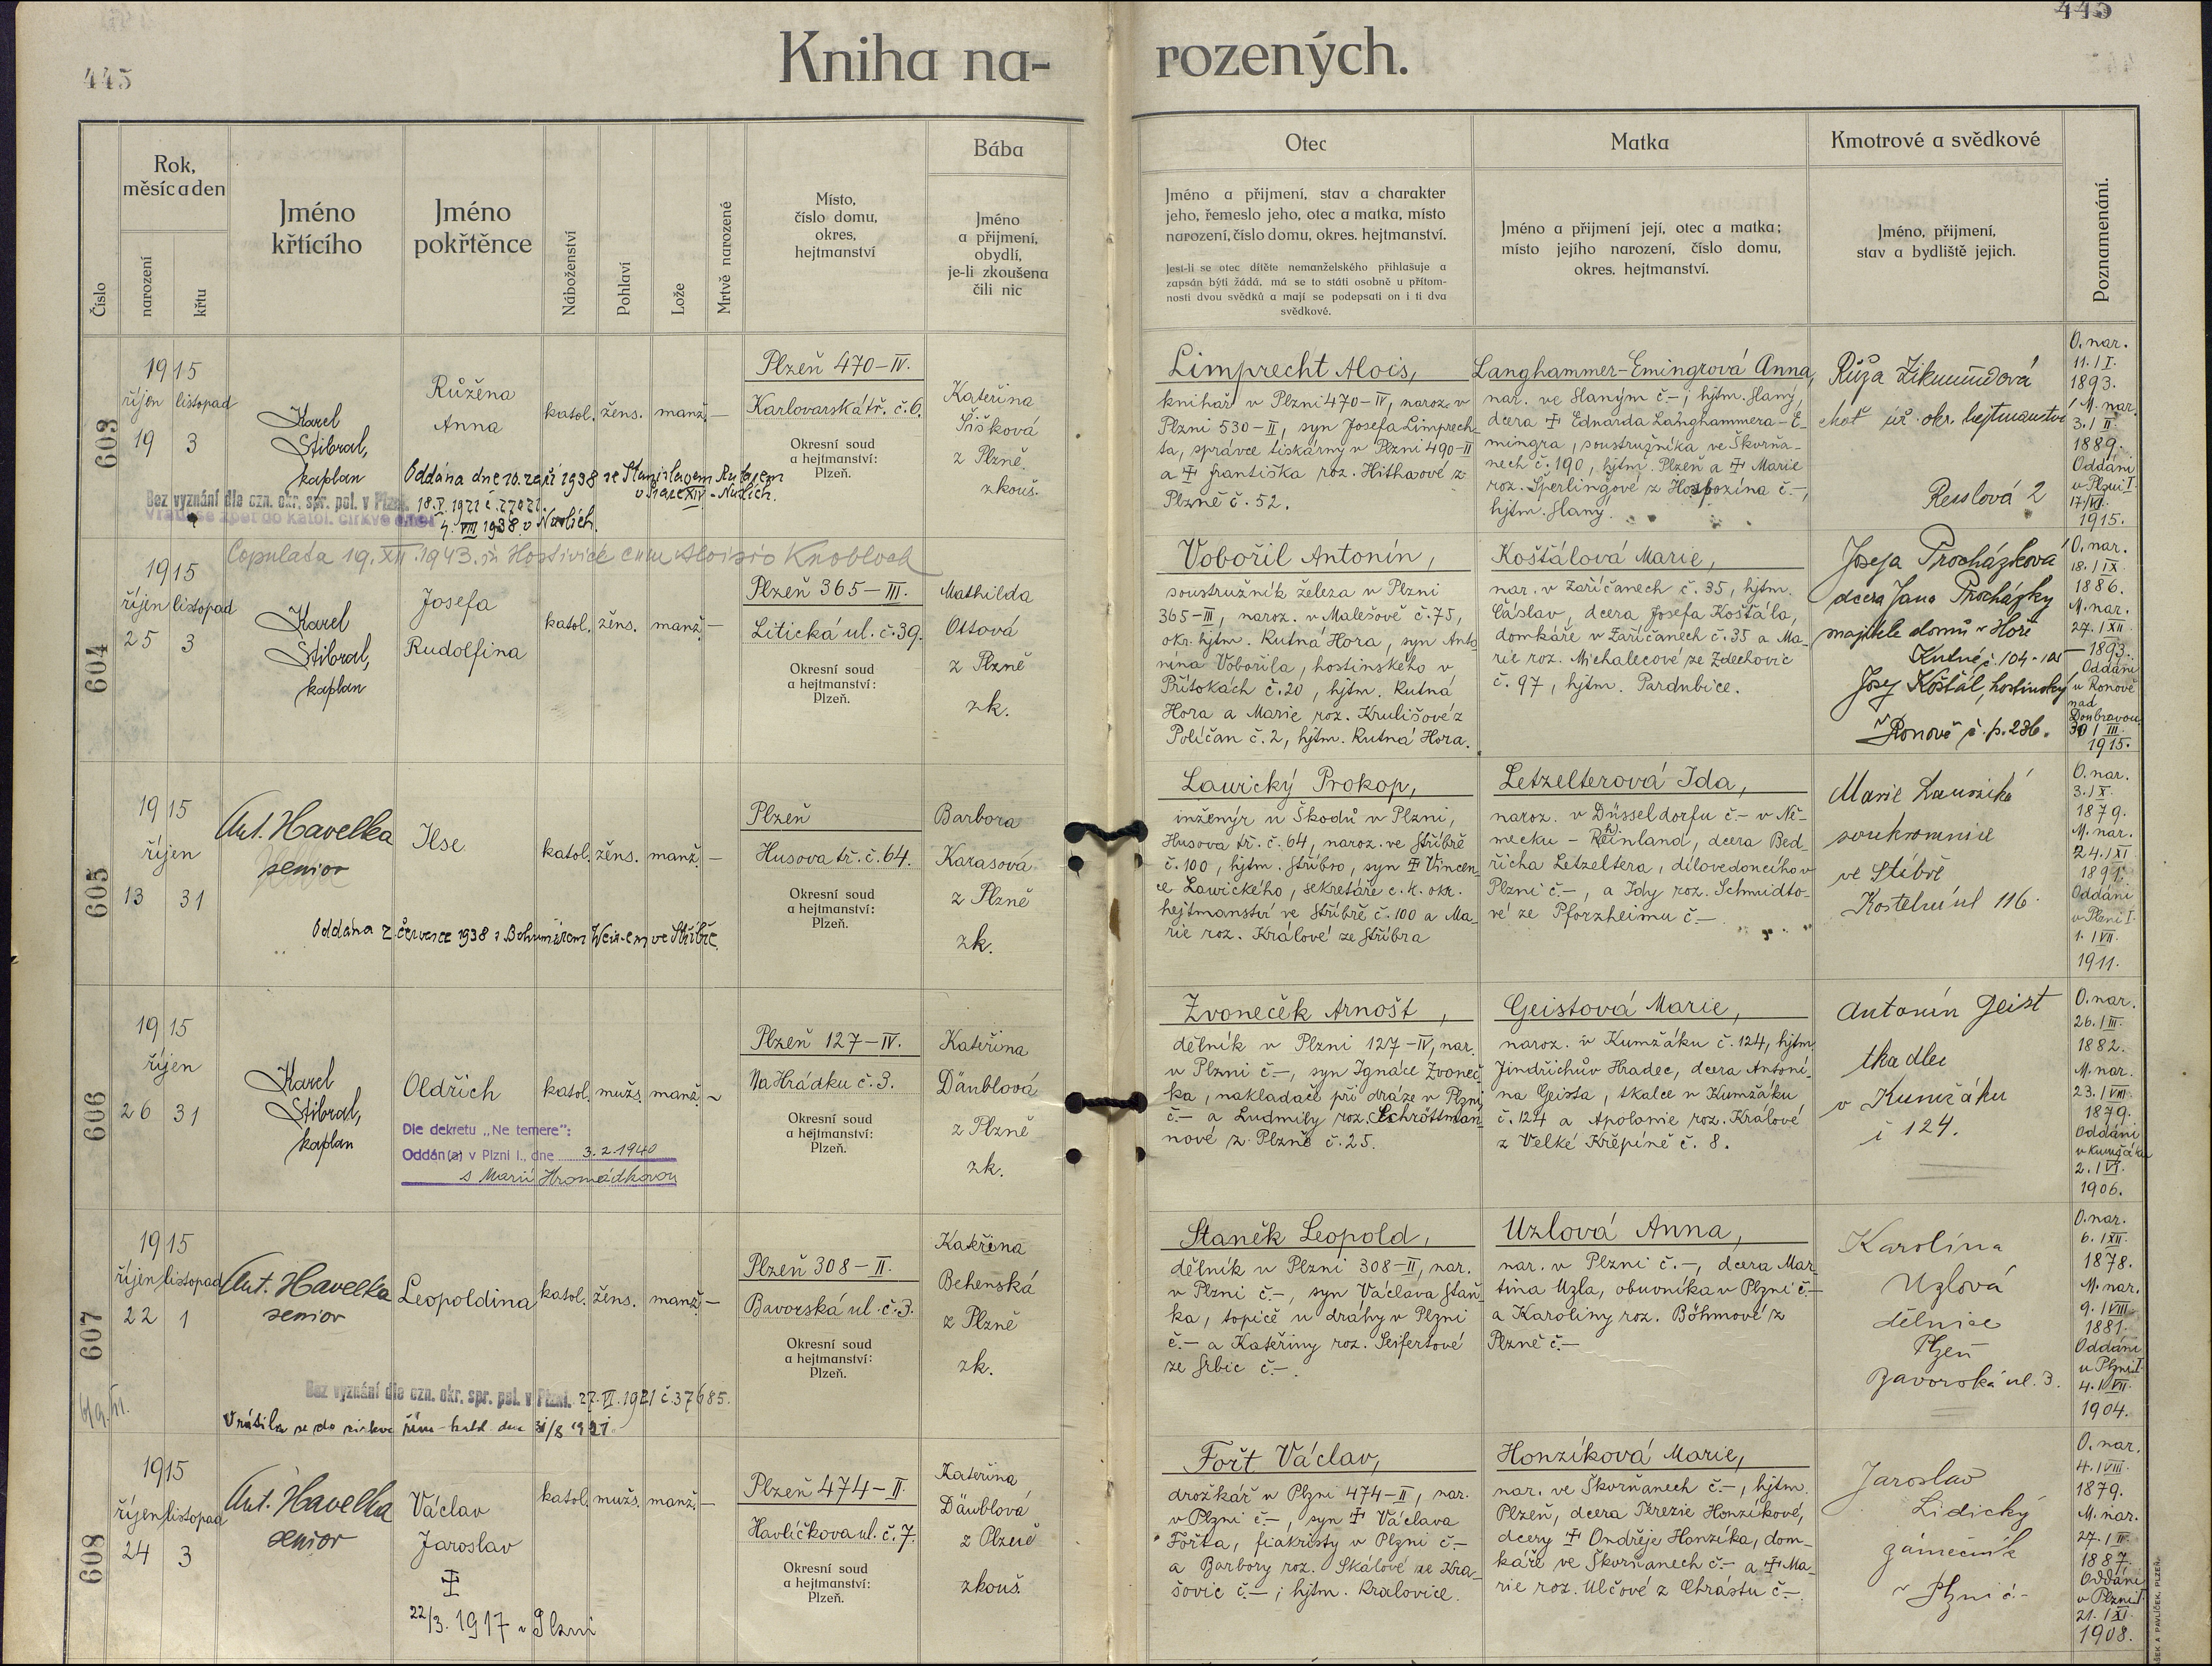 445
445
Kniha na-
rozených.
Číslo
Rok,
měsíc a den
narození
křtu
Jméno
křtícího
Jméno
pokřtěnce
Náboženství
Pohlaví
Lože
Mrtvě narozené
Místo,
číslo domu,
okres,
hejtmanství
Bába
Jméno
a přijmení,
obydlí,
je-li zkoušena
čili nic
Otec
Jméno a přijmení, stav a charakter
jeho, řemeslo jeho, otec a matka, místo
narození, číslo domu, okres. hejtmanství.
Jest-li se otec dítěte nemanželského přihlašuje a
zapsán býti žádá, má se to státi osobně u přítom-
nosti dvou svědků a mají se podepsati on i ti dva
svědkové.
Matka
Jméno a přijmení její, otec a matka;
místo jejího narození, číslo domu,
okres. hejtmanství.
Kmotrové a svědkové
Jméno, přijmení,
stav a bydliště jejich.
Poznamenání.
603
1915
říjen listopad
19 3
Karel
Stibral,
kaplan
Růžena
Anna
katol. žens. manž. —
Plzeň 470-IV.
Karlovarská tř. č. 6.
Okresní soud
a hejtmanství:
Plzeň.
Kateřina
Šišková
z Plzně.
zkouš.
Oddána dne 10. září 1938 se Stanislavem
Bez vyznání dle ozn. okr. spr. pol. v Plzni. 18.V. 1921 č. 27021.
Vrátil se zpět do katol. církve dne
4. VIII 1938 v Nuslích.
Limprecht Alois,
knihař v Plzni 470-IV, naroz. v
Plzni 530-II, syn Josefa Limprech-
ta, správce tiskárny v Plzni 490-II
a ☩ Františka roz. Hithaové z
Plzně č. 52.
Langhammer-Emingrová Anna,
nar. ve Slaným č. —, hjtm. Slaný,
dcera ☩ Eduarda Langhammera-E-
mingra, soustružníka ve Škvrňa-
nech č. 190, hjtm. Plzeň a ☩ Marie
roz. Šperlingové z Hospozína č. —,
hjtm. Slaný.
Růža Zikmundová
choť úř. okr. hejtmanství
Resslová 2
O. nar.
11./I.
1893.
M. nar.
3./II.
1889.
Oddáni
v Plzni I.
17/VI.
1915.
604
Copulata 19. XII. 1943. in Hostivice cum Aloisio Knobloch
1915
říjen listopad
25 3
Karel
Stibral,
kaplan
Josefa
Rudolfina
katol. žens. manž. —
Plzeň 365-III.
Litická ul. č. 39.
Okresní soud
a hejtmanství:
Plzeň.
Mathilda
Ottová
z Plzně
zk.
Vobořil Antonín,
soustružník železa v Plzni
365-III, naroz. v Malešově č. 75,
okr. hjtm. Kutná Hora, syn Anto
nína Vobořila, hostinského v
Přítokách č. 20, hjtm. Kutná
Hora a Marie roz. Krulišové z
Poličan č. 2, hjtm. Kutná Hora.
Košťálová Marie,
nar. v Zaříčanech č. 35, hjtm.
Čáslav, dcera Josefa Košťála,
domkáře v Zaříčanech č. 35 a Ma-
rie roz. Michalecové ze Zdechovic
č. 97, hjtm. Pardubice.
Josefa Procházková
dcera Jana Procházky
majitele domů v Hoře
Kutné č. 104-105
Josef Košťál, hostinský
v Ronově č. p. 236.
O. nar.
18./IX.
1886.
M. nar.
27./XII
1893.
Oddáni
v Ronově
nad
Doubravou
30/III.
1915.
605
1915
říjen
13 31
Ant. Havelka
senior
Ilse
katol. žens. manž. —
Plzeň
Husova tř. č. 64.
Okresní soud
a hejtmanství:
Plzeň.
Barbora
Karasová
z Plzně
zk.
Oddána 2. července 1938 s Bohumírem Weis-em ve Stříbře.
Lawický Prokop,
inženýr u Škodů v Plzni,
Husova tř. č. 64, naroz. ve Stříbře
č. 100, hjtm. Stříbro, syn ☩ Vincen-
ce Lawického, sekretáře c. k. okr.
hejtmanství ve Stříbře č. 100 a Ma-
rie roz. Králové ze Stříbra
Letzelterová Ida,
naroz. v Düsseldorfu č. — v Ně-
mecku - Rheinland, dcera Bed-
řicha Letzeltera, dílovedoucího v
Plzni č. —, a Idy roz. Schmidto-
vé ze Pforzheimu č. —
Marie Lawická
soukromnice
ve Stříbře
Kostelní ul 116.
O. nar.
3./X.
1879.
M. nar.
24./XI
1891.
Oddáni
v Plzni I.
1./VII.
1911.
606
1915
říjen
26 31
Karel
Stibral,
kaplan
Oldřich
katol. mužs. manž. ~
Plzeň 127-IV.
Na Hrádku č. 3.
Okresní soud
a hejtmanství:
Plzeň.
Kateřina
Däublová
z Plzně
zk.
Dle dekretu „Ne temere":
Oddán(a) v Plzni I., dne 3.2.1940
s Marií Hromádkovou
Zvoneček Arnošt,
dělník v Plzni 127-IV, nar.
v Plzni č. —, syn Ignáce Zvoneč-
ka, nakladače při dráze v Plzni
č. — a Ludmily roz. Schröttman-
nové z Plzně č. 25.
Geistová Marie,
naroz. v Kumžáku č. 124, hjtm.
Jindřichův Hradec, dcera Antoní-
na Geista, tkalce v Kumžáku
č. 124 a Apolonie roz. Králové
z Velké Křepíně č. 8.
Antonín Geist
tkadlec
v Kumžáku
č 124.
O. nar.
26./III.
1882.
M. nar.
23./VIII.
1879.
Oddáni
v Kumžáku
2./VI.
1906.
607
1915
říjen listopad
22 1
Ant. Havelka
senior
Leopoldina
katol. žens. manž. —
Plzeň 308-II.
Bavorská ul. č. 3.
Okresní soud
a hejtmanství:
Plzeň.
Kateřina
Behenská
z Plzně
zk.
Bez vyznání dle ozn. okr. spr. pol. v Plzni. 27. VI. 1921 č. 37685.
Vrátila se do církve řím-katol. dne 31/8 1921.
Staněk Leopold,
dělník v Plzni 308-II, nar.
v Plzni č. —, syn Václava Staň-
ka, topiče u dráhy v Plzni
č. — a Kateřiny roz. Seifertové
ze Srbic č. —.
Uzlová Anna,
nar. v Plzni č. —, dcera Mar-
tina Uzla, obuvníka v Plzni č. —
a Karoliny roz. Böhmové z
Plzně č. —
Karolína
Uzlová
dělnice
Plzeň
Bavorská ul. 3.
O. nar.
6./XII.
1878.
M. nar.
9./VIII.
1881.
Oddáni
v Plzni I.
4./VII.
1904.
608
1915
říjen listopad
24 3
Ant. Havelka
senior
Václav
Jaroslav
☩
22/3. 1917 v Plzni
katol. mužs. manž. —
Plzeň 474-II.
Havlíčkova ul. č. 7.
Okresní soud
a hejtmanství:
Plzeň.
Kateřina
Däublová
z Plzně
zkouš.
Fořt Václav,
drožkář v Plzni 474-II, nar.
v Plzni č. —, syn ☩ Václava
Fořta, fiakristy v Plzni č. —
a Barbory roz. Skálové ze Kra-
šovic č. —; hjtm. Kralovice.
Honzíková Marie,
nar. ve Škvrňanech č. —, hjtm.
Plzeň, dcera Terezie Honzíkové,
dcery ☩ Ondřeje Honzíka, dom-
káře ve Škvrňanech č. — a ☩ Ma-
rie roz. Ulčové z Chrástu č. —.
Jaroslav
Lidický
zámečník
v Plzni č. -
O. nar.
4./VIII.
1879.
M. nar.
27./III.
1887.
Oddáni
v Plzni I.
21./XI.
1908.